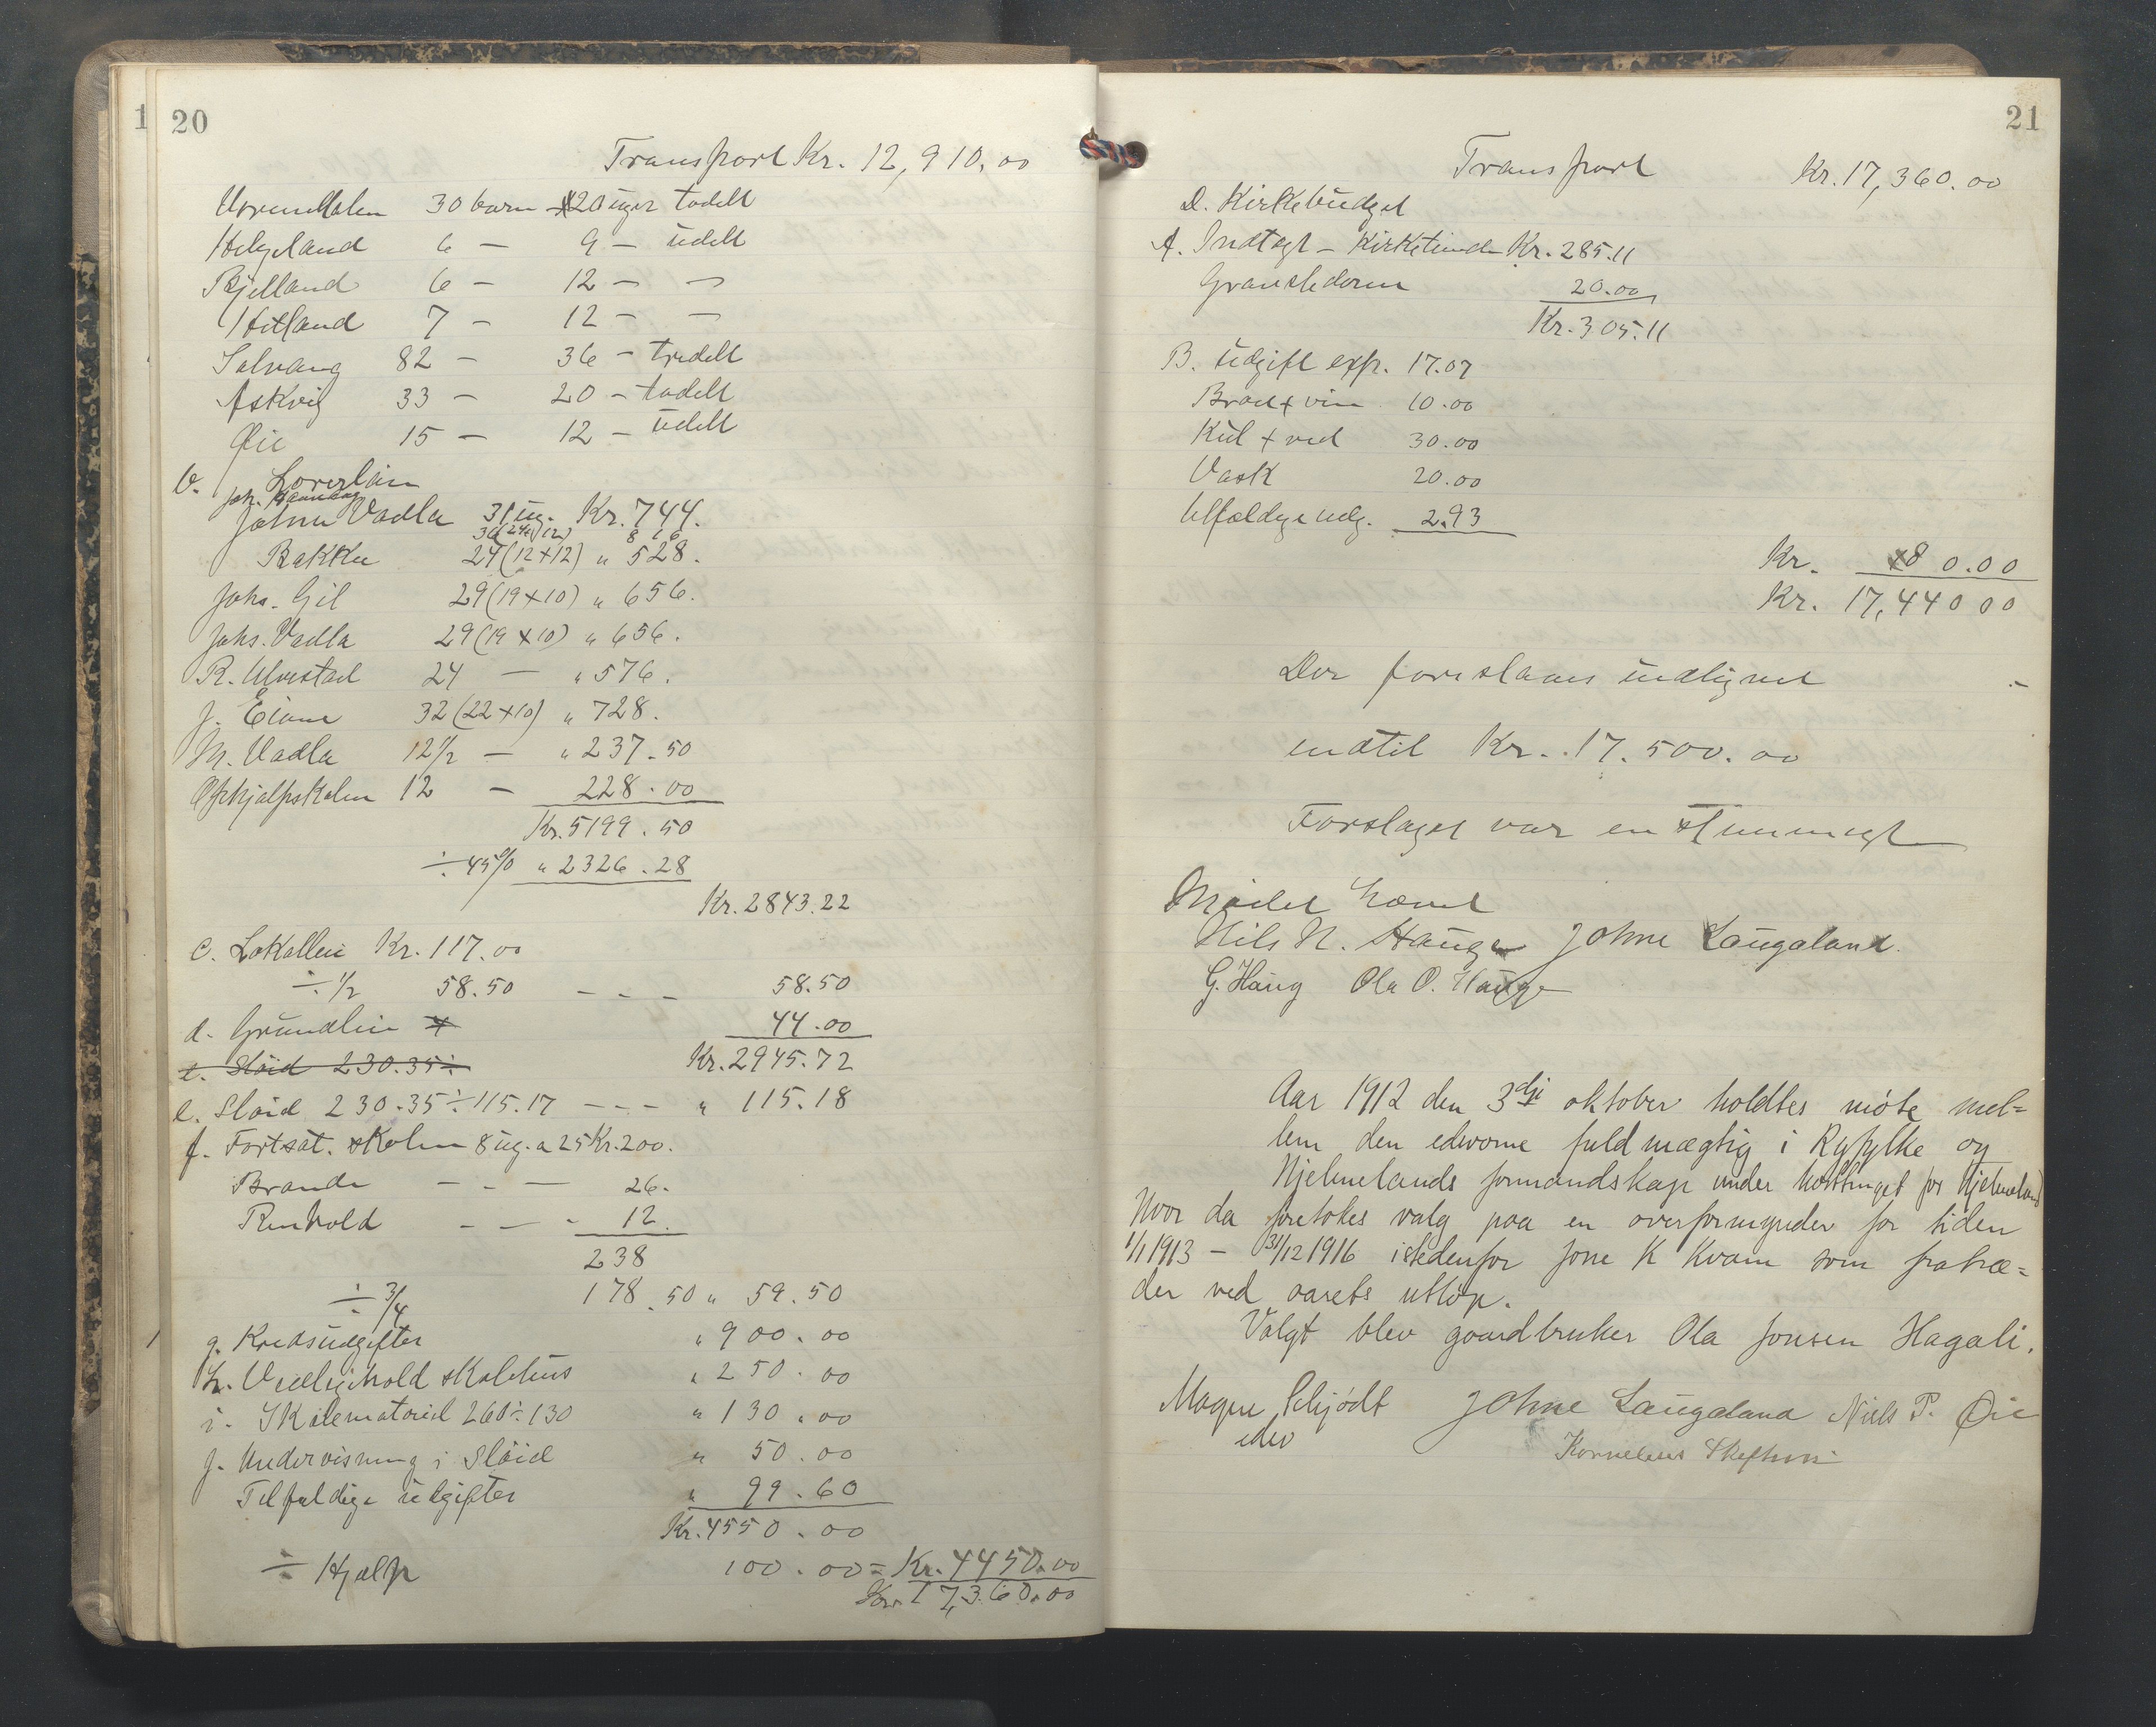 1
20
Transport Kr. 12,910.00
30 barn 20 uger todelt
Helgeland 6 — 9 — üdelt
Bjelland 6 — 12 — —
Hetland 7 — 12 — —
Solvang 82 — 36 — tredelt
Askvig 33 — 20 — todelt
Øie 15 — 12 — üdelt
b. Lærerløn
Johne Vadla 31 üg. Kr. 744.
816
Bakke 24 (12+12) " 528.
Johs. Gil 29 (19+10) " 656.
Johs. Vadla 29 (19+10) " 656.
R. Ulvestad 24 — " 576.
J. Eiane 32 (22+10) " 728.
M. Vadla 12½ — " 237.50
Ophjælpskolen 12 — 228.00
Kr. 5199.50
÷ 45% " 2326.28
Kr. 2843.22
c. Lokalleie Kr. 117.00
÷ ½ 58.50 – – – 58.50
d. Grundleie 44.00
e. Slöid 230.35 ÷
Kr. 2945.72
e. Slöid 230.35 ÷ 115.17 – – – " 115.18
f. Fortsat. skolen 8 üg. a 25 Kr. 200.
Brænde – – – 26.
Renhold – – – 12.
238
÷ 3/4 178.50 " 59.50
g. Kredsüdgifter " 900.00
h. Vedligehold skolehüs " 250.00
i. Skolemateriel 260 ÷ 130 " 130.00
j. Undervisning i Slöid " 50.00
Tilfældige üdgifter " 99.60
Kr. 4550.00
÷ Hjælp 100.00 = Kr. 4450.00
Kr. 17,360.00
21
Transport Kr. 17,360.00
D. Kirkebüdget
A. Indtægt – Kirketiende Kr. 285.11
20.00
Kr. 305.11
B. Üdgift exp. 17.07
Brød + vin 10.00
Kül + ved 30.00
Vask 20.00
Tilfældige udg. 2.93
Kr. 80.00
Kr. 17,440 00
Der foreslaaes üdlignet
indtil Kr. 17.500.00
Forslaget var enstemmigt
Mødet hævet
Nils N. Haüge Johne Laügaland.
G. Haüg Ola O. Haüge
Aar 1912 den 3dje oktober holdtes møte mel=
lem den edsvorne fuldmægtig i Ryfylke og
Hjelmelands formandskap under høsttinget for Hjelmeland
Hvor da foretokes valg paa en overformynder for tiden
1/1 1913 – 31/12 1916 istedenfor Jone K Kvam som fratræ=
der ved aarets utløp.
Valgt blev gaardbruker Ola Jonsen Hagali.
Magne Schjødt Johne Laügaland Niels P. Øie
edsv
Kornelius